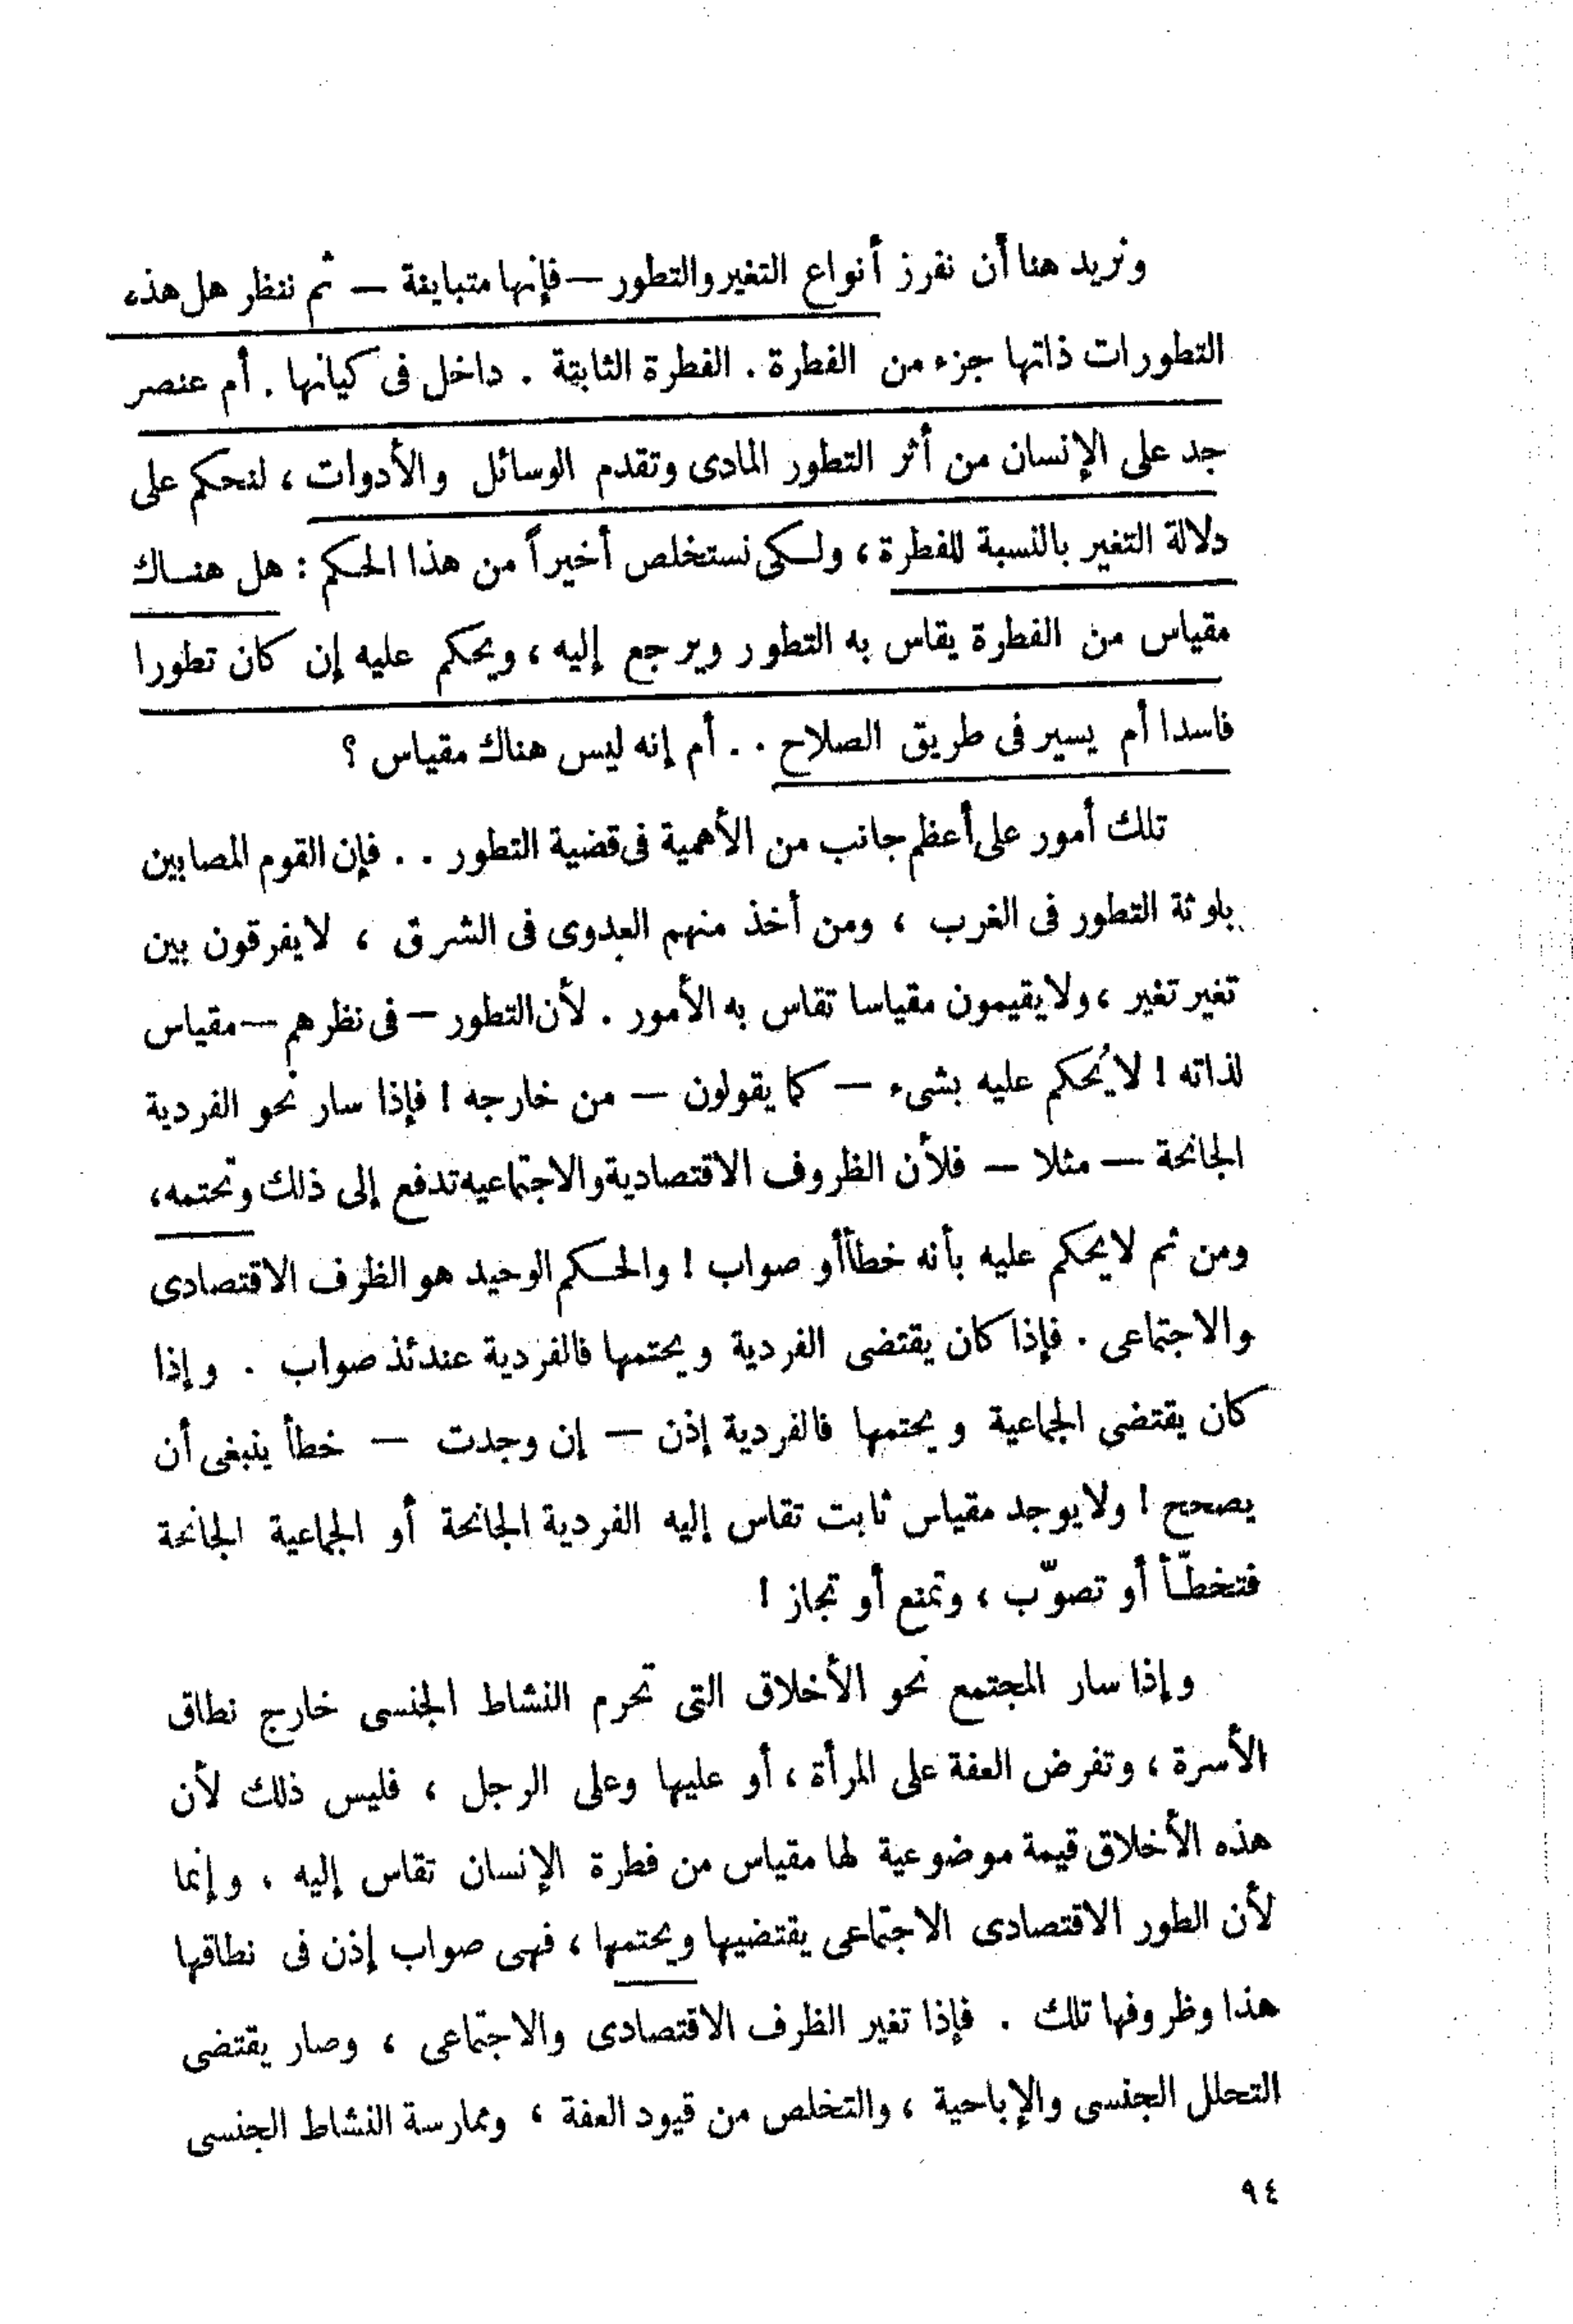 ونريد هنا أن نفرز أنواع التغير والتطور – فإنها متباينة – ثم ننظر هل هذه
التطورات ذاتها جزء من الفطرة . الفطرة الثابتة . داخل فى كيانها . أم عنصر
جد على الإنسان من أثر التطور المادى وتقدم الوسائل والأدوات ، لنحكم على
دلالة التغير بالنسبة للفطرة ، ولكى نستخلص أخيراً من هذا الحكم : هل هناك
مقياس من الفطرة يقاس به التطور ويرجع إليه ، ويحكم عليه إن كان تطورا
فاسدا أم يسير فى طريق الصلاح . . أم إنه ليس هناك مقياس ؟
تلك أمور على أعظم جانب من الأهمية فى قضية التطور . . فإن القوم المصابين
بلوثة التطور فى الغرب ، ومن أخذ منهم العدوى فى الشرق ، لا يفرقون بين
تغير تغير ، ولا يقيمون مقياسا تقاس به الأمور . لأن التطور – فى نظرهم – مقياس
لذاته ! لا يُحكم عليه بشىء – كما يقولون – من خارجه ! فإذا سار نحو الفردية
الجانحة – مثلا – فلأن الظروف الاقتصادية والاجتماعيه تدفع إلى ذلك وتحتمه ،
ومن ثم لا يحكم عليه بأنه خطأ أو صواب ! والحكم الوحيد هو الظرف الاقتصادى
والاجتماعى . فإذا كان يقتضى الفردية ويحتمها فالفردية عندئذ صواب . وإذا
كان يقتضى الجماعية ويحتمها فالفردية إذن – إن وجدت – خطأ ينبغى أن
يصحح ! ولا يوجد مقياس ثابت تقاس إليه الفردية الجانحة أو الجماعية الجانحة
فتخطّأ أو تصوّب ، وتمنع أو تجاز !
وإذا سار المجتمع نحو الأخلاق التى تحرم النشاط الجنسى خارج نطاق
الأسرة ، وتفرض العفة على المرأة ، أو عليها وعلى الرجل ، فليس ذلك لأن
هذه الأخلاق قيمة موضوعية لها مقياس من فطرة الإنسان تقاس إليه . وإنما
لأن الطور الاقتصادى الاجتماعى يقتضيها ويحتمها ، فهى صواب إذن فى نطاقها
هذا وظروفها تلك . فإذا تغير الظرف الاقتصادى والاجتماعى ، وصار يقتضى
التحلل الجنسى والإباحية ، والتخلص من قيود العفة ، وممارسة النشاط الجنسى
٩٤